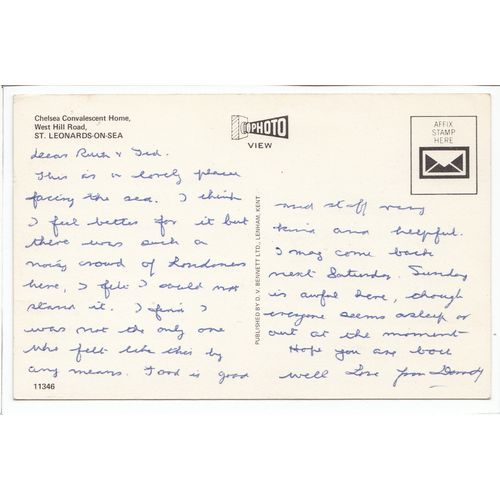 Chelsea Convalescent Home,
West Hill Road,
ST. LEONARDS-ON-SEA
PHOTO
VIEW
AFFIX
STAMP
HERE
dear Ruth & Ted.
This is a lovely place
facing the sea. I think
I feel better for it but
there was such a
noisy crowd of Londoners
here, I felt I could not
stand it. I find I
was not the only one
who felt like this by
any means. Food is good
11346
PUBLISHED BY D. V. BENNETT LTD., LENHAM, KENT
and staff very
kind and helpful.
I may come back
next Saturday. Sunday
is awful here, though
everyone seems asleep or
out at the moment
Hope you are both
well Love from